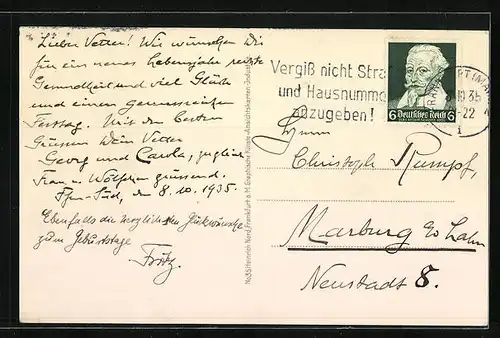 Lieber Vetter! Wir wünschen Dir
für ein neues Lebensjahr rechte
Gesundheit und viel Glück
und einen genussreichen
Festtag. Mit den besten
Grüssen Dein Vetter
Georg und Carola, zugleich
Frau u. Wölfchen grüssend.
Ffm-Süd, den 8.10.1935.
Ebenfalls die herzlichsten Glückwünsche
zum Geburtstage
Fritz.
No.35 Heinrich Nerd Frankfurt a.M. Graphische Kunst-Ansichtskarten-Industrie
Vergiß nicht Straß
und Hausnummer
anzugeben!
FRANKFURT (MAIN)
10.35
-22
6 Deutsches Reich 6
Herrn
Christoph Rumpf,
Marburg a/Lahn
Neustadt 8.